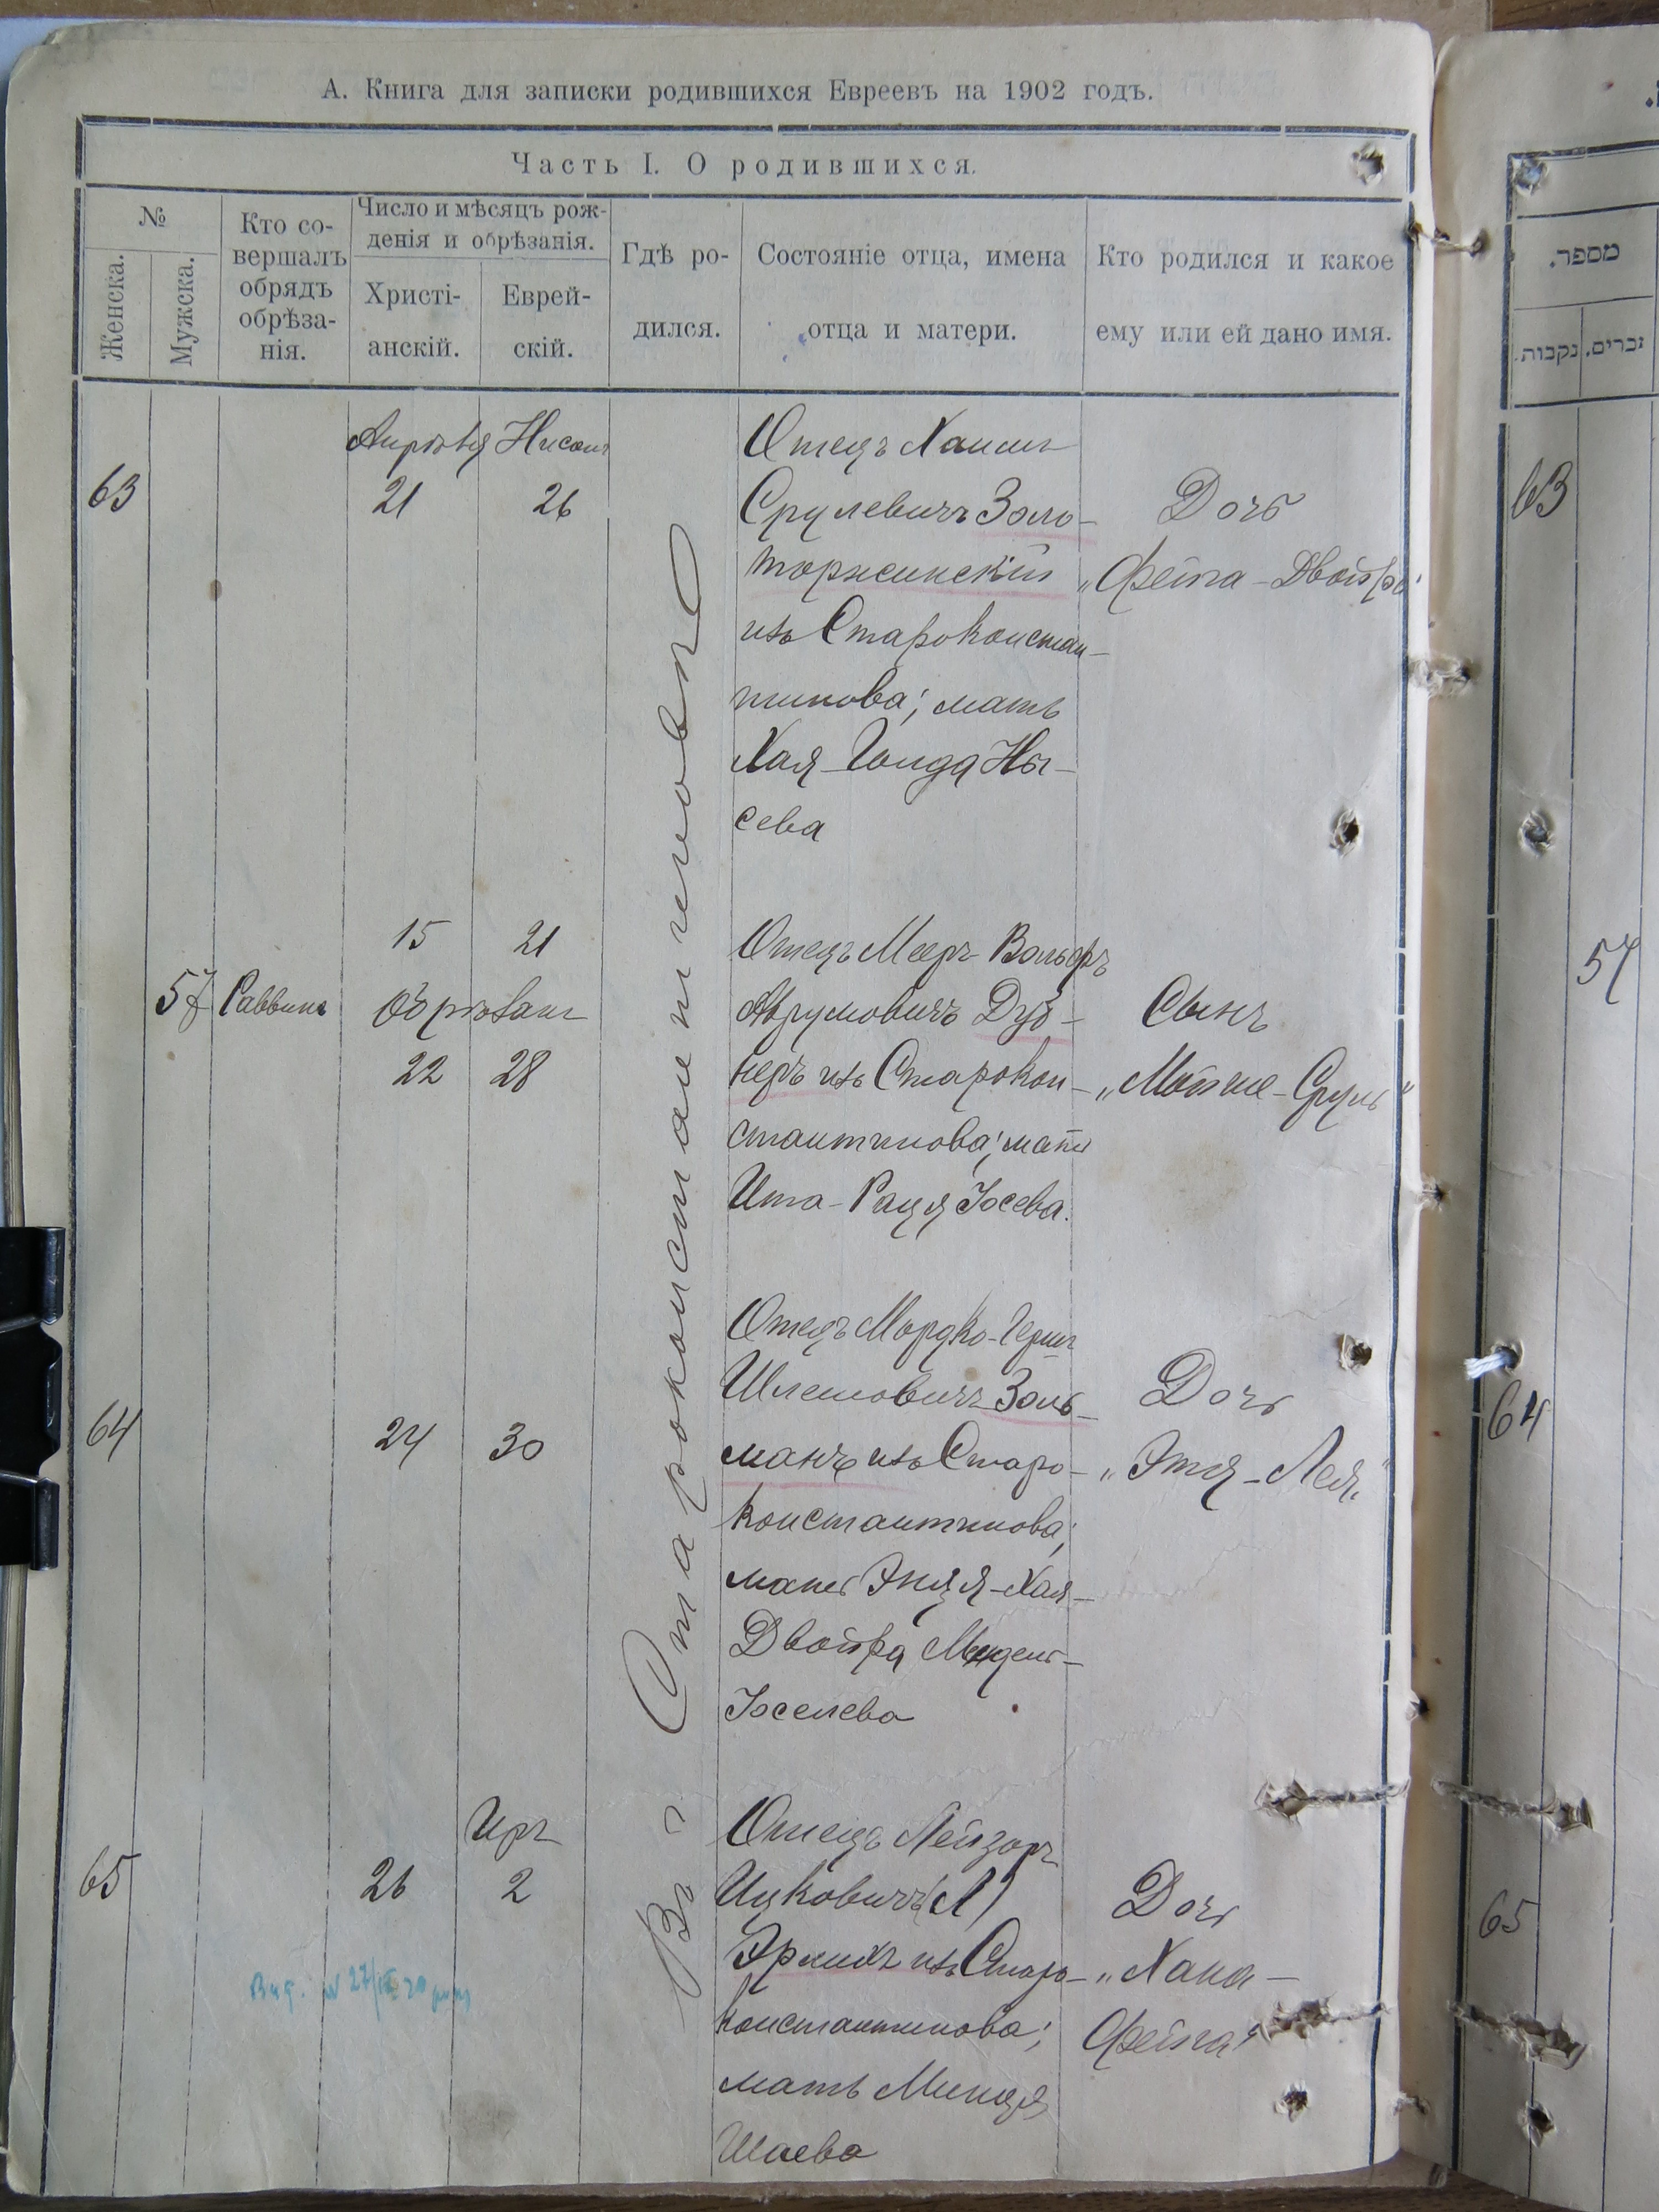 А. Книга для записки родившихся Евреевъ на 1902 годъ.
Часть I. О родившихся.
№
Женска.
Мужска.
Кто со-
вершалъ
обрядъ
обрѣза-
нія.
Число и мѣсяцъ рож-
денія и обрѣзанія.
Христі-
анскій.
Еврей-
скій.
Гдѣ ро-
дился.
Состояніе отца, имена
отца и матери.
Кто родился и какое
ему или ей дано имя.
מספר.
נקבות.
זכרים.
Въ г. Староконстантиновѣ
Апрѣля Нисонъ
63
21 26
Отецъ Хаимъ
Срулевичъ Золо-
торжинскій
изъ Старо Констан-
тинова; мать
Хая-Голда Ны-
сева
Дочь
„Фейга-Двойра"
63
15 21
57 Раввинъ Обрѣзанъ
22 28
Отецъ Мееръ-Вольфъ
Аврумовичъ Дуб-
неръ изъ Старокон-
стантинова; мать
Ита-Рация Іосева.
Сынъ
„Мойше-Сруль"
57
64
24 30
Отецъ Мордко-Герш
Шлемовичъ Золь-
манъ изъ Старо-
константинова;
мать Энця-Хая-
Двойра Мендель-
Іоселева
Дочь
„Этя-Лея"
64
Иръ
65
26 2
Отецъ Лейзоръ
Ицковичъ (Л)
Эрлихъ изъ Старо-
константинова;
мать Минця
Шаева
Дочь
„Хана-
Фейга"
65